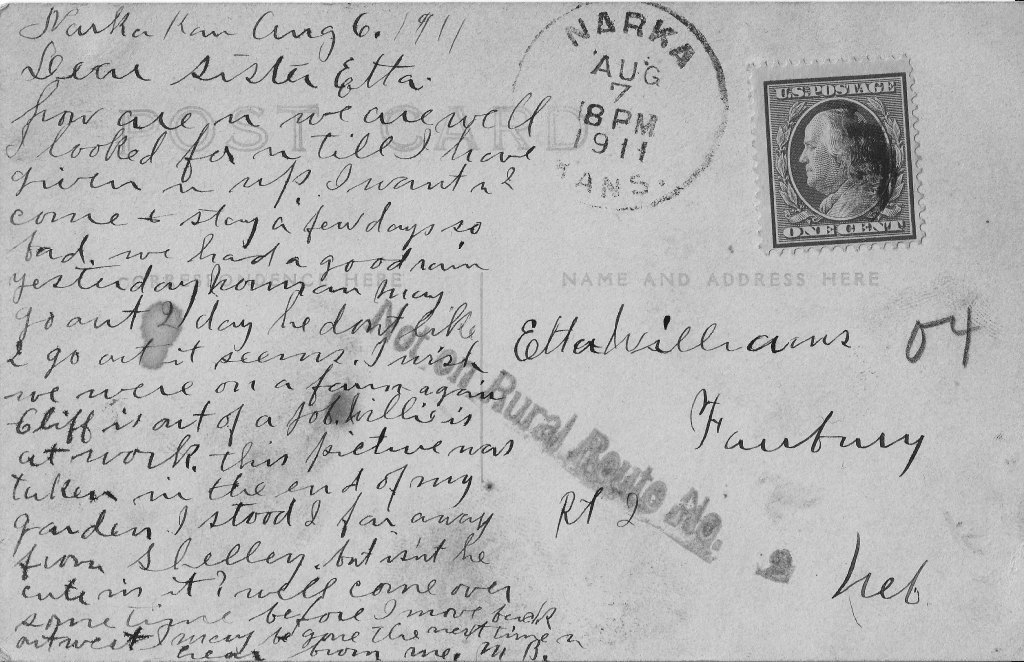 Narka Kan Aug 6. 1911
Dear Sister Etta.
how are u we are well
I looked for u till I have
given u up I want u 2
come & stay a few days so
bad. we had a good rain
yesterday may
go out 2 day he dont like
2 go out it seems. I wish
we were on a farm again
Cliff is out of a job. Willie is
at work. this picture was
taken in the end of my
garden I stood 2 far away
from Shelley. but isn't he
cute in it? well come over
some time before I move back
out west I may be gone the next time u
hear from me. M B.
POST CARD
CORRESPONDENCE HERE
NARKA
AUG
7
8 PM
1911
KANS.
U.S. POSTAGE
ONE CENT
NAME AND ADDRESS HERE
Etta Williams
04
Fairbury
Rt 2
Neb
Not on Rural Route No.
2